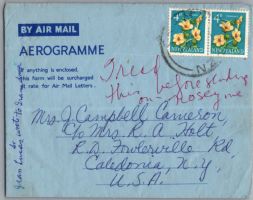 BY AIR MAIL
AEROGRAMME
If anything is enclosed
this form will be surcharged
at rate for Air Mail Letters.
4c 4c
NEW ZEALAND NEW ZEALAND
N.Z.
Tried
this before sending
on
Mrs. J Campbell Cameron
C/o Mrs. R. A. Holt
R.D. Fowlerville Rd,
Caledonia, N.Y,
U.S.A.